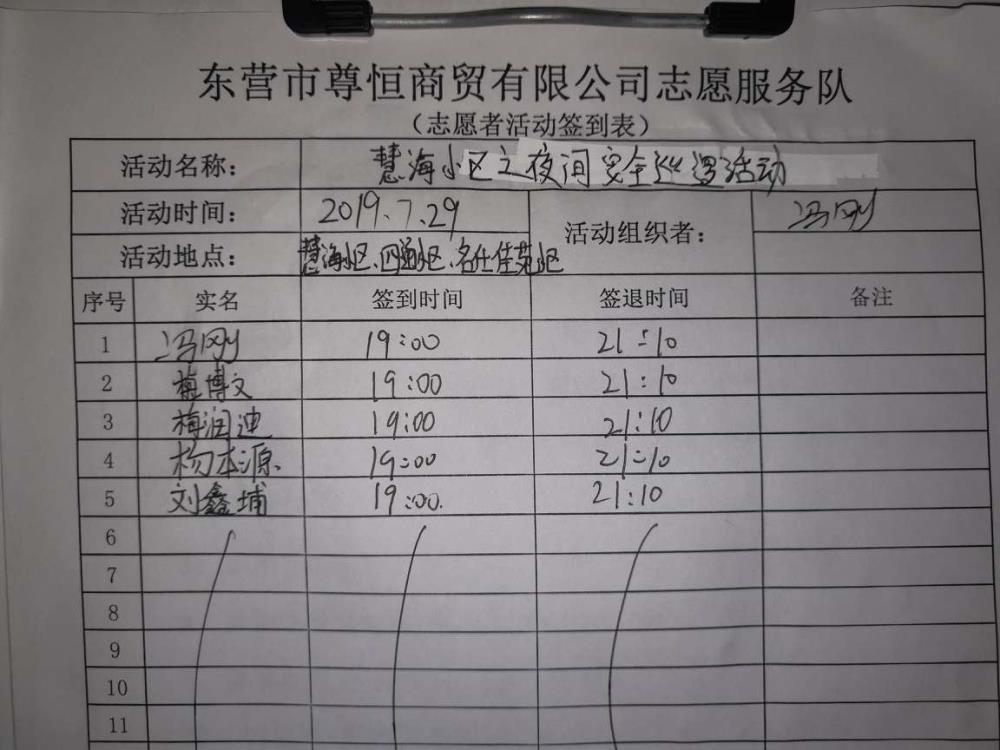 东营市尊恒商贸有限公司志愿服务队
(志愿者活动签到表)
活动名称: 慧海小区之夜间安全巡逻活动
活动时间: 2019.7.29 活动组织者: 冯刚
活动地点: 慧海小区、四通小区、名仕佳苑小区
序号 实名 签到时间 签退时间 备注
1 冯刚 19:00 21:10
2 梅博文 19:00 21:10
3 梅润迪 19:00 21:10
4 杨本源 19:00 21:10
5 刘鑫埔 19:00 21:10
6
7
8
9
10
11